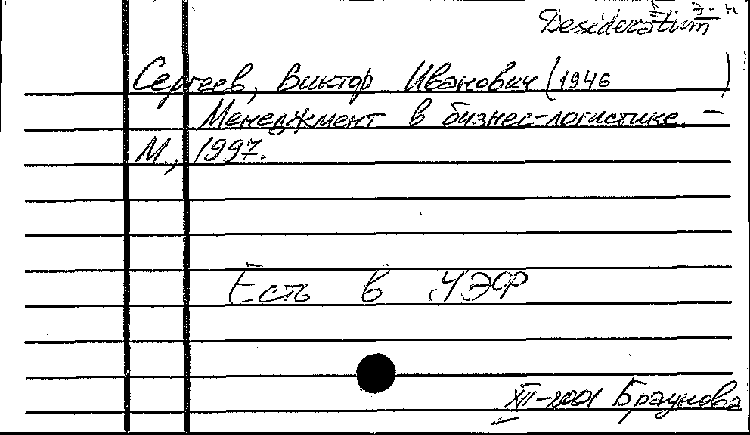 Desideratum
Сергеев, Виктор Иванович (1946 )
Менеджмент в бизнес-логистике. –
М, 1997.
Есть в УЭФ
XII-2001 Браунова